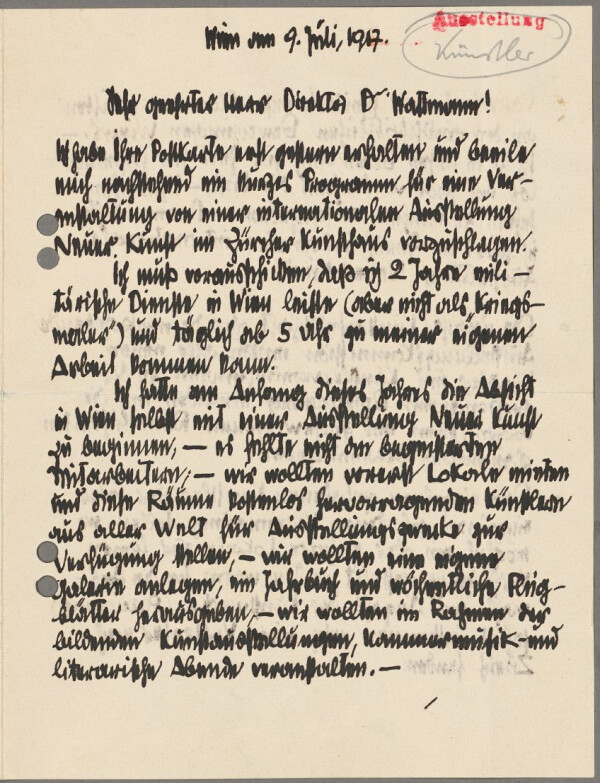 Ausstellung
Künstler
Wien am 9. Juli, 1917.
Sehr geehrter Herr Direktor Dr Wartmann!
Ich habe Ihre Postkarte erst gestern erhalten und beeile
mich nachstehend ein kurzes Programm für eine Ver-
anstaltung von einer internationalen Ausstellung
Neuer Kunst im Zürcher Kunsthaus vorzuschlagen.
Ich muß vorausschicken, daß ich 2 Jahre mili-
tärische Dienste in Wien leiste (aber nicht als „Kriegs-
maler") und täglich ab 5 Uhr zu meiner eigenen
Arbeit kommen kann.
Ich hatte am Anfang dieses Jahres die Absicht
in Wien selbst mit einer Ausstellung Neuer Kunst
zu beginnen, — es fehlte nicht an begeisterten
Mitarbeitern; — wir wollten vorerst Lokale mieten
und diese Räume kostenlos hervorragenden Künstlern
aus aller Welt für Ausstellungszwecke zur
Verfügung stellen, — wir wollten eine eigene
Galerie anlegen, ein Jahrbuch und wöchentliche Flug-
blätter herausgeben, — wir wollten im Rahmen der
bildenden Kunstausstellungen, Kammermusik- und
literarische Abende veranstalten. —